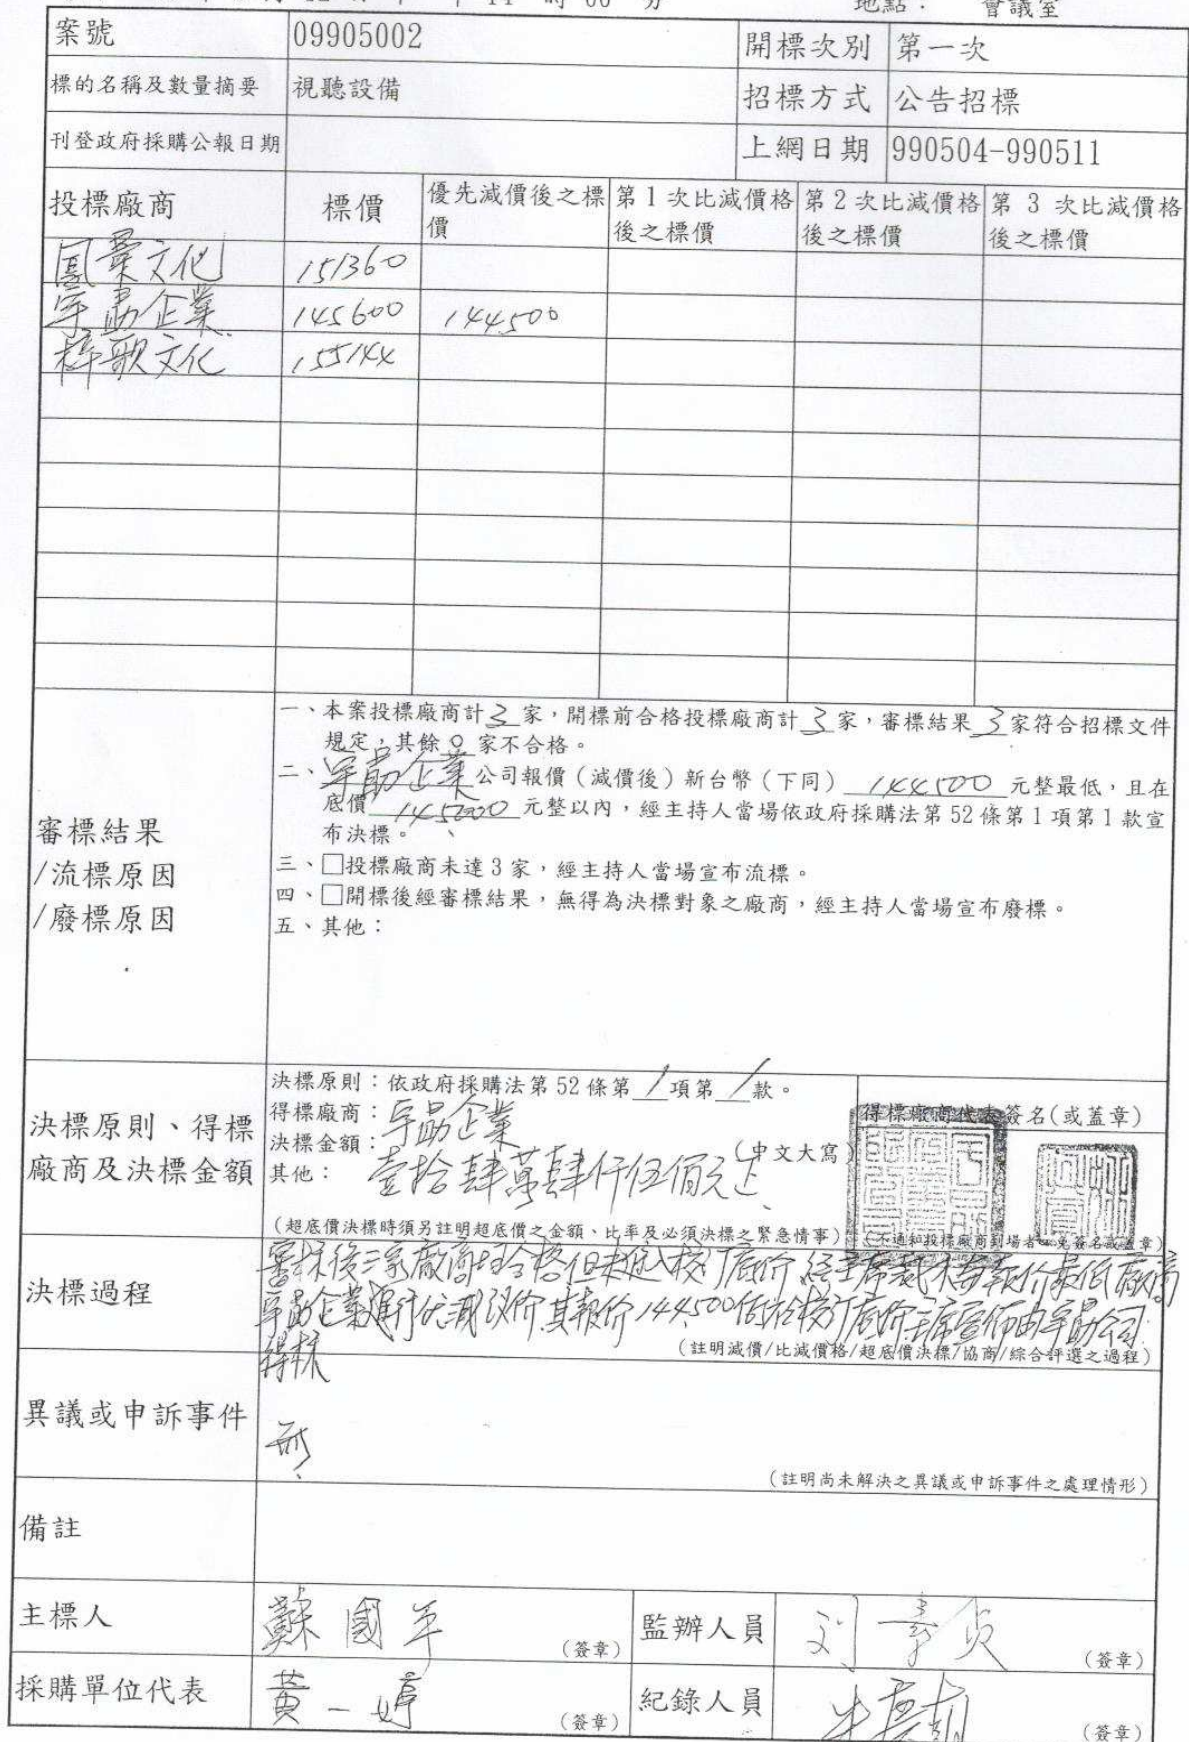 14 時 00 分 地點： 會議室
案號 09905002 開標次別 第一次
標的名稱及數量摘要 視聽設備 招標方式 公告招標
刊登政府採購公報日期 上網日期 990504-990511
投標廠商 標價 優先減價後之標價 第1次比減價格後之標價 第2次比減價格後之標價 第 3 次比減價格後之標價
文化 151360
企業 145600 144500
梓歌文化 155144
審標結果
/流標原因
/廢標原因
一、本案投標廠商計 3 家，開標前合格投標廠商計 3 家，審標結果 3 家符合招標文件
規定，其餘 0 家不合格。
二、企業公司報價（減價後）新台幣（下同） 144500 元整最低，且在
底價 元整以內，經主持人當場依政府採購法第52條第1項第1款宣
布決標。
三、□投標廠商未達3家，經主持人當場宣布流標。
四、□開標後經審標結果，無得為決標對象之廠商，經主持人當場宣布廢標。
五、其他：
決標原則、得標
廠商及決標金額
決標原則：依政府採購法第52條第 1 項第 1 款。
得標廠商： 企業
決標金額： 壹拾肆萬肆仟伍佰元正 (中文大寫)
其他：
得標廠商代表簽名(或蓋章)
(超底價決標時須另註明超底價之金額、比率及必須決標之緊急情事)
(不通知投標廠商到場者 免簽名或蓋章)
決標過程
審標後三家廠商均合格但未進入核订底价 經主席 報价最低廠商
企業進行优減议价其報价144500低於核订底价主席宣佈由 公司
得标
(註明減價/比減價格/超底價決標/協商/綜合評選之過程)
異議或申訴事件
(註明尚未解決之異議或申訴事件之處理情形)
備註
主標人 蘇國平 (簽章) 監辦人員 (簽章)
採購單位代表 黃一婷 (簽章) 紀錄人員 (簽章)